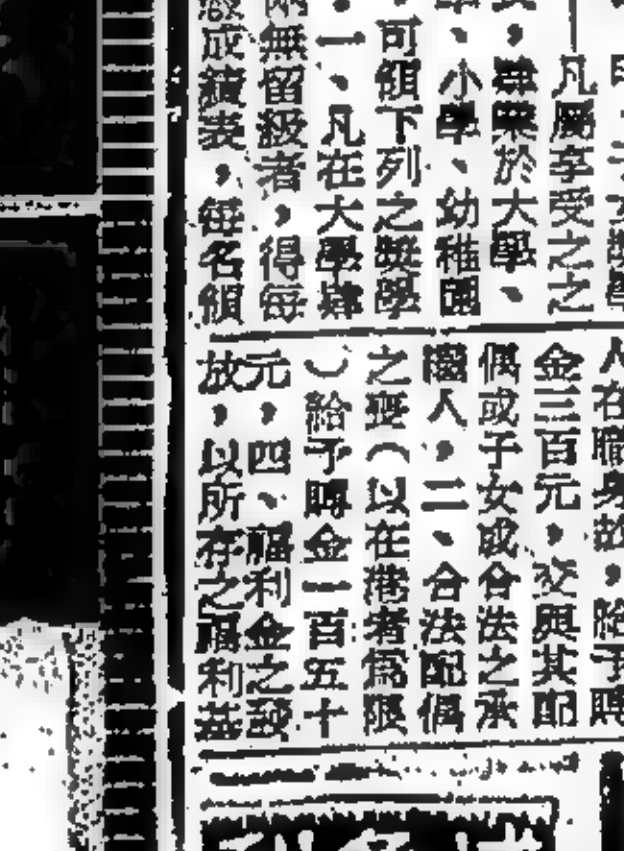 凡屬享受之之
，畢業於大學、
、小學、幼稚園
可領下列之獎學
。一、凡在大學肄
無留級者，得每
成績表，每名領
人在職身故，除予聘
金三百元，交與其配
偶或子女或合法之承
繼人，二、合法配偶
之喪（以在港者為限
）給予賻金一百五十
元，四、福利金之發
放，以所存之福利基